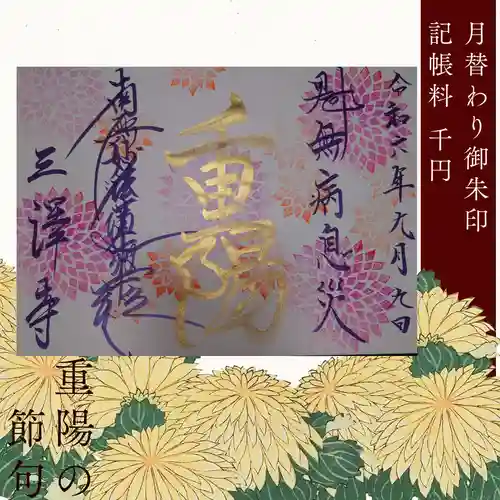 月替わり御朱印
記帳料 千円
令和六年九月九日
無病息災
重陽
三澤寺
重陽の
節句